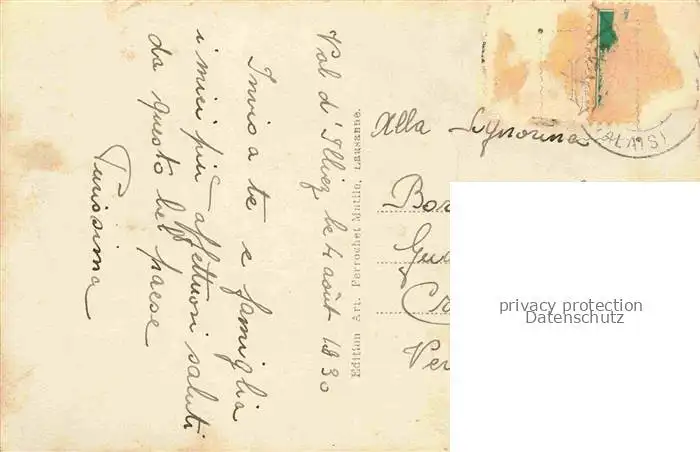 Val d'Illiez le 4 août 1930
Invio a te e famiglia
i miei più affettuosi saluti
da questo bel paese
Edition Art. Perrochet Matile, Lausanne.
Alla Signorina
Bor
Gu
Ver
(VALAIS)
privacy protection
Datenschutz